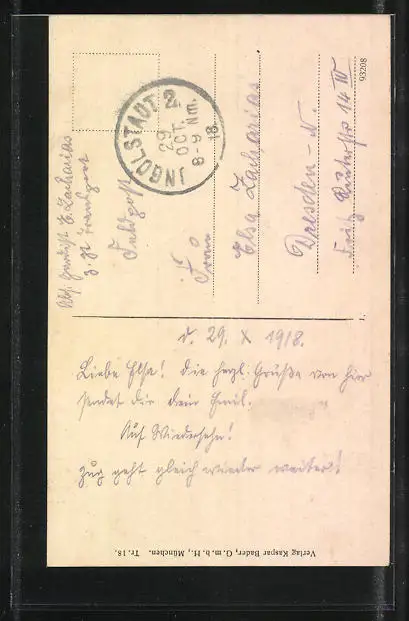 Abs. Gefreit. E. Zacharias
z. Zt Transport
Feldpost
INGOLSTADT 2.
29
OCT.
8-9 Nm.
18.
Frau
Elsa Zacharias
Dresden-N.
14 IV
93208
d. 29. X 1918.
Liebe Elsa! Die herzl. Grüße von hier
sendet dir dein Emil.
Auf Wiedersehn!
Zug geht gleich wieder weiter!
Verlag Kaspar Bader, G. m. b. H., München. Tr. 18.